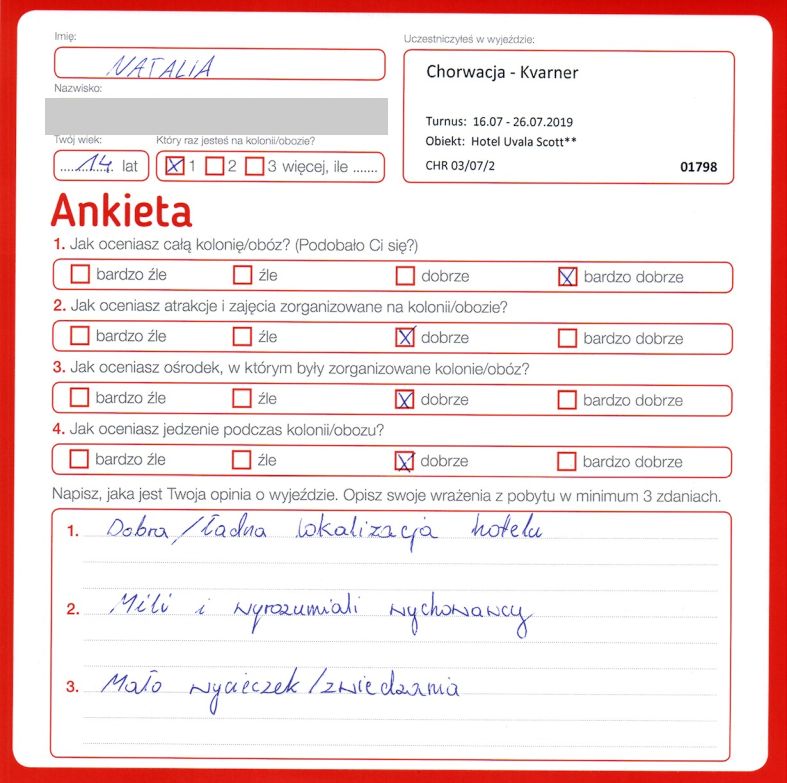 Imię:
NATALIA
Nazwisko:
Twój wiek:
14 lat
Który raz jesteś na kolonii/obozie?
1 2 3 więcej, ile .......
Uczestniczyłeś w wyjeździe:
Chorwacja - Kvarner
Turnus: 16.07 - 26.07.2019
Obiekt: Hotel Uvala Scott**
CHR 03/07/2 01798
Ankieta
1. Jak oceniasz całą kolonię/obóz? (Podobało Ci się?)
bardzo źle źle dobrze bardzo dobrze
2. Jak oceniasz atrakcje i zajęcia zorganizowane na kolonii/obozie?
bardzo źle źle dobrze bardzo dobrze
3. Jak oceniasz ośrodek, w którym były zorganizowane kolonie/obóz?
bardzo źle źle dobrze bardzo dobrze
4. Jak oceniasz jedzenie podczas kolonii/obozu?
bardzo źle źle dobrze bardzo dobrze
Napisz, jaka jest Twoja opinia o wyjeździe. Opisz swoje wrażenia z pobytu w minimum 3 zdaniach.
1. Dobra/ładna lokalizacja hotelu
2. Mili i wyrozumiali wychowawcy
3. Mało wycieczek/zwiedzania